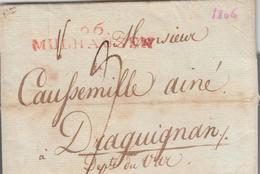 1806
66.
MULHAUSEN
Monsieur
Caussemille ainé
à Draguignan
Dept. du Var